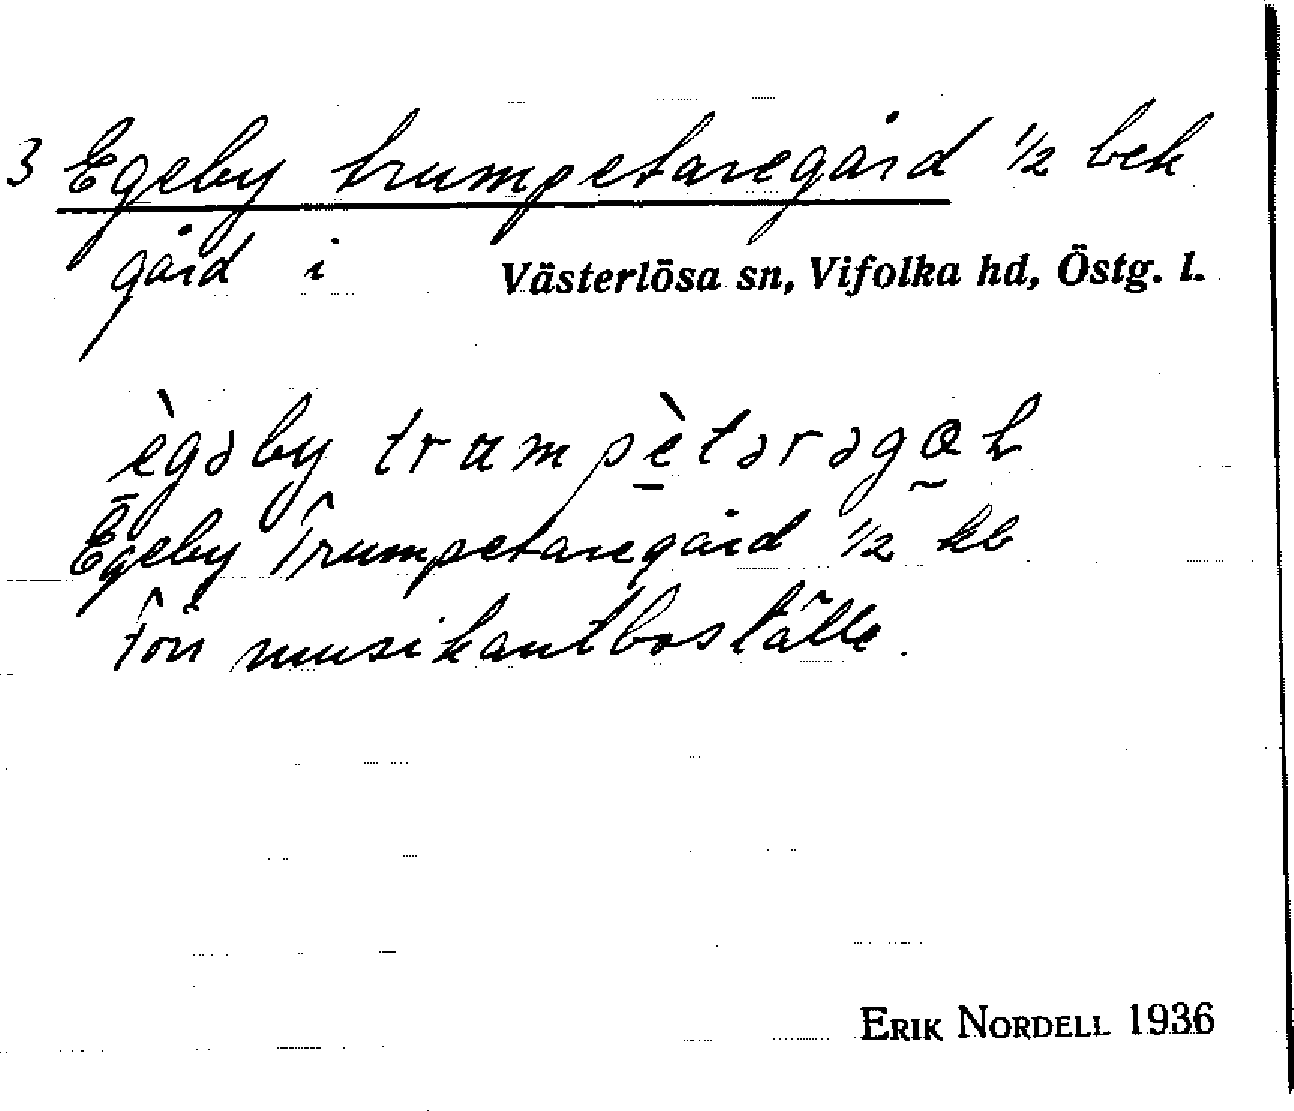 3 Egeby trumpetaregård ½ bek
gård i Västerlösa sn, Vifolka hd, Östg. l.
ègəby trumpètərəgɑɫ
Egeby Trumpetaregård ½ kb
Förr musikantboställe.
ERIK NORDELL 1936